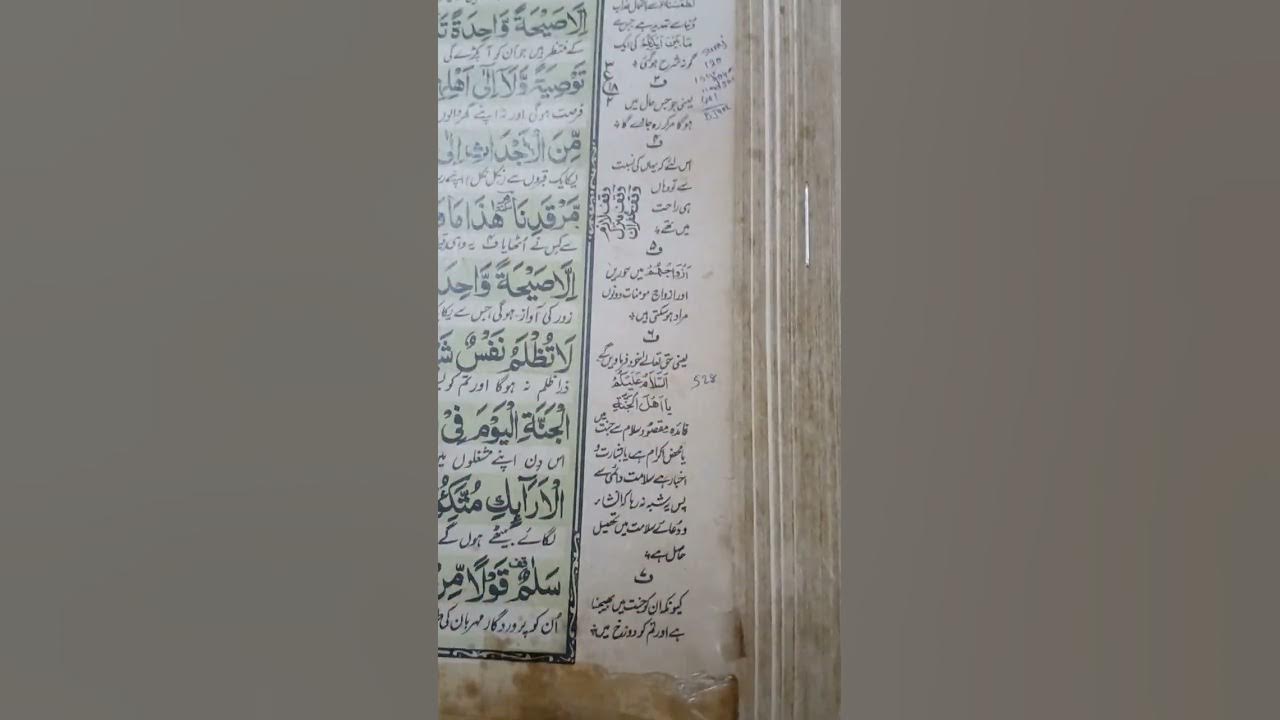 اِلَّا صَيْحَةً وَّاحِدَةً
کے منتظر ہیں جو ان کو آ پکڑے گی
تَوْصِيَةً وَّلَا اِلٰى اَهْلِهِ
فرصت ہوگی اور نہ اپنے گھر والوں
مِّنَ الْاَجْدَاثِ اِلٰى
یکایک قبروں سے
مَّرْقَدِنَا هٰذَا مَا
سے کس نے اُٹھایا ف۴ یہ وہی
اِلَّا صَيْحَةً وَّاحِدَ
زور کی آواز ہوگی جس سے یکا
لَا تُظْلَمُ نَفْسٌ شَ
ذرا ظلم نہ ہوگا اور تم کو
الْجَنَّةِ الْيَوْمَ فِىْ
اس دن اپنے مشغلوں میں
الْاَرَآئِكِ مُتَّكِئُ
لگائے بیٹھے ہوں گے
سَلٰمٌ قَوْلًا مِّنْ
اُن کو پروردگار مہربان کی
مَا بَيْنَ اَيْدِيْكُمْ کی ایک
گونہ شرح ہوگئی
ف۳
یعنی جو جس حال میں
ہوگا مرکر رہ جاوے گا
ف۴
اس لئے کہ یہاں کی نسبت
سے تو وہاں
ہی راحت
میں تھے
وقف لازم
وقف منزل
وقف غفران
ف۵
اَزْوَاجُهُمْ میں حوریں
اور ازواج مومنات دونوں
مراد ہوسکتی ہیں
ف۶
یعنی حق تعالےٰ خود فرماویں گے
اَلسَّلَامُ عَلَيْكُمْ
يَا اَهْلَ الْجَنَّةِ
فائدہ مقصود سلام سے جنت میں
یا محض اکرام ہے یا بشارت و
اخبار ہے سلامت دائمی سے
پس یہ شبہ نہ رہا کہ انشاء
و دُعائے سلامت میں تحصیل
حاصل ہے
ف۷
کیونکہ ان کو جنت میں بھیجنا
ہے اور تم کو دوزخ میں
528